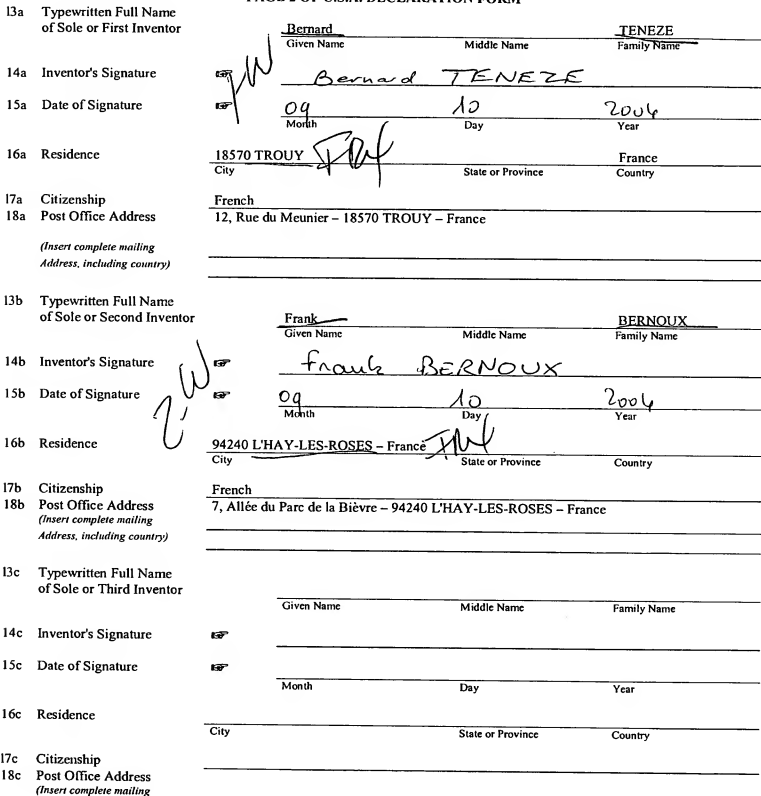 PAGE 2 OF U.S.A. DECLARATION FORM
13a Typewritten Full Name
of Sole or First Inventor Bernard TENEZE
Given Name Middle Name Family Name
14a Inventor's Signature Bernard TENEZE
15a Date of Signature 09 10 2004
Month Day Year
16a Residence 18570 TROUY France
City State or Province Country
17a Citizenship French
18a Post Office Address 12, Rue du Meunier – 18570 TROUY – France
(Insert complete mailing
Address, including country)
13b Typewritten Full Name
of Sole or Second Inventor Frank BERNOUX
Given Name Middle Name Family Name
14b Inventor's Signature Frank BERNOUX
15b Date of Signature 09 10 2004
Month Day Year
16b Residence 94240 L'HAY-LES-ROSES – France
City State or Province Country
17b Citizenship French
18b Post Office Address 7, Allée du Parc de la Bièvre – 94240 L'HAY-LES-ROSES – France
(Insert complete mailing
Address, including country)
13c Typewritten Full Name
of Sole or Third Inventor
Given Name Middle Name Family Name
14c Inventor's Signature
15c Date of Signature
Month Day Year
16c Residence
City State or Province Country
17c Citizenship
18c Post Office Address
(Insert complete mailing